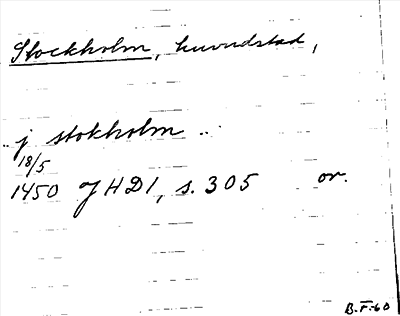 Stockholm, huvudstad,
.. j stokholm ..
18/5
1450 JHD 1, s. 305 or.
B.F-60